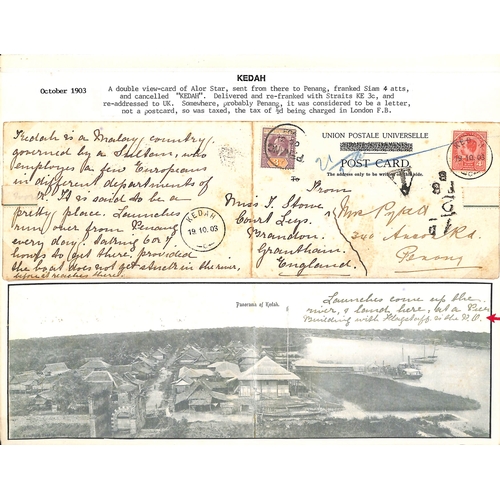 KEDAH
October 1903
A double view-card of Alor Star, sent from there to Penang, franked Siam 4 atts,
and cancelled "KEDAH". Delivered and re-franked with Straits KE 3c, and
re-addressed to UK. Somewhere, probably Penang, it was considered to be a letter,
not a postcard, so was taxed, the tax of ½d being charged in London F.B.
Kedah is a Malay country
governed by a Sultan, who
employs a few Europeans
in different departments of
It is said to be a
pretty place. Launches
run over from Penang
every day! taking 6 or 7
hours to get there, provided
the boat does not get stuck in the river,
before it reaches there!
KEDAH
19 10 03
UNION POSTALE UNIVERSELLE
POST CARD
The address only to be written on this side.
To
From
Miss T. Stowe
Court Leys
Brandon
Grantham
England
Mrs Pykett
Anson Rd.
Penang
KEDAH
19 10 03
T
Panorama of Kedah.
Launches come up the
river, & land here, at a Pier
Building with Flagstaff is the P.O.